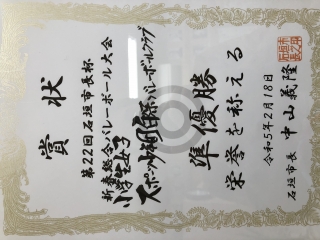 賞状
第22回石垣市長杯
新春総合バレーボール大会
小学生女子
スポーツ少年団バレーボールクラブ
準優勝
栄誉を称える
令和5年2月18日
石垣市長 中山義隆